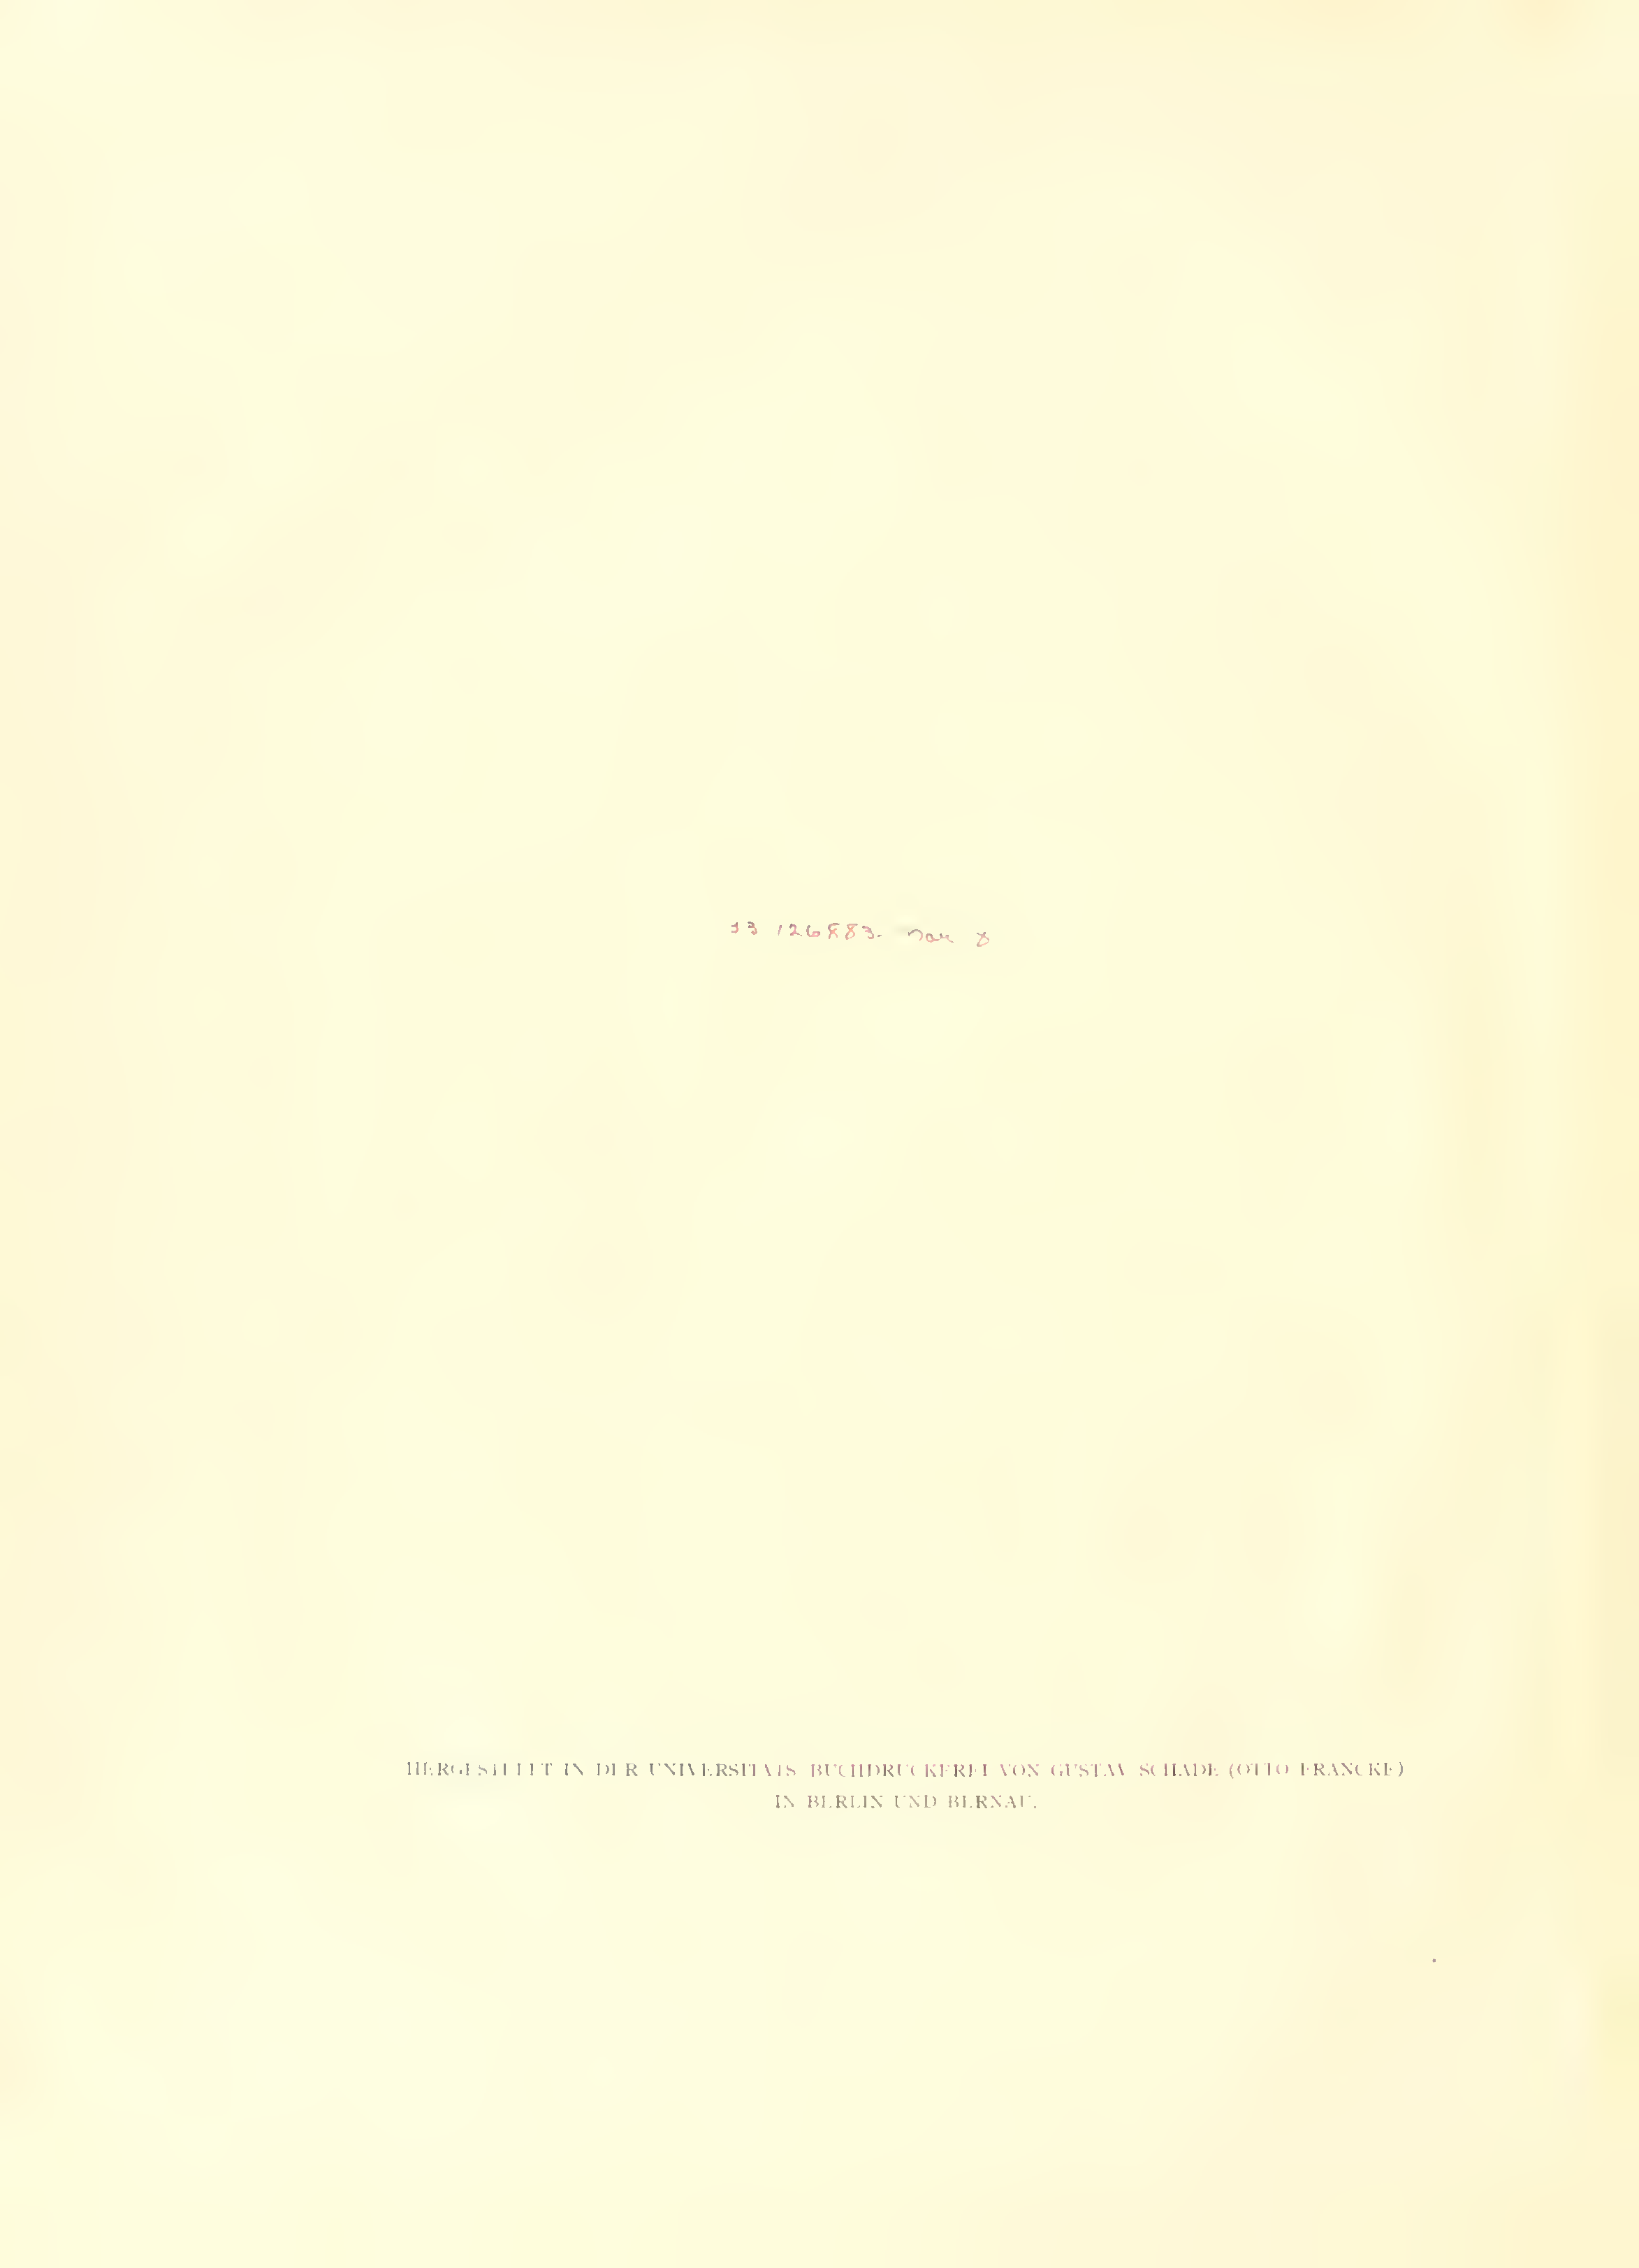 33 126883.
HERGESTELLT IN DER UNIVERSITÄTS BUCHDRUCKEREI VON GUSTAV SCHADE (OTTO FRANCKE)
IN BERLIN UND BERNAU.